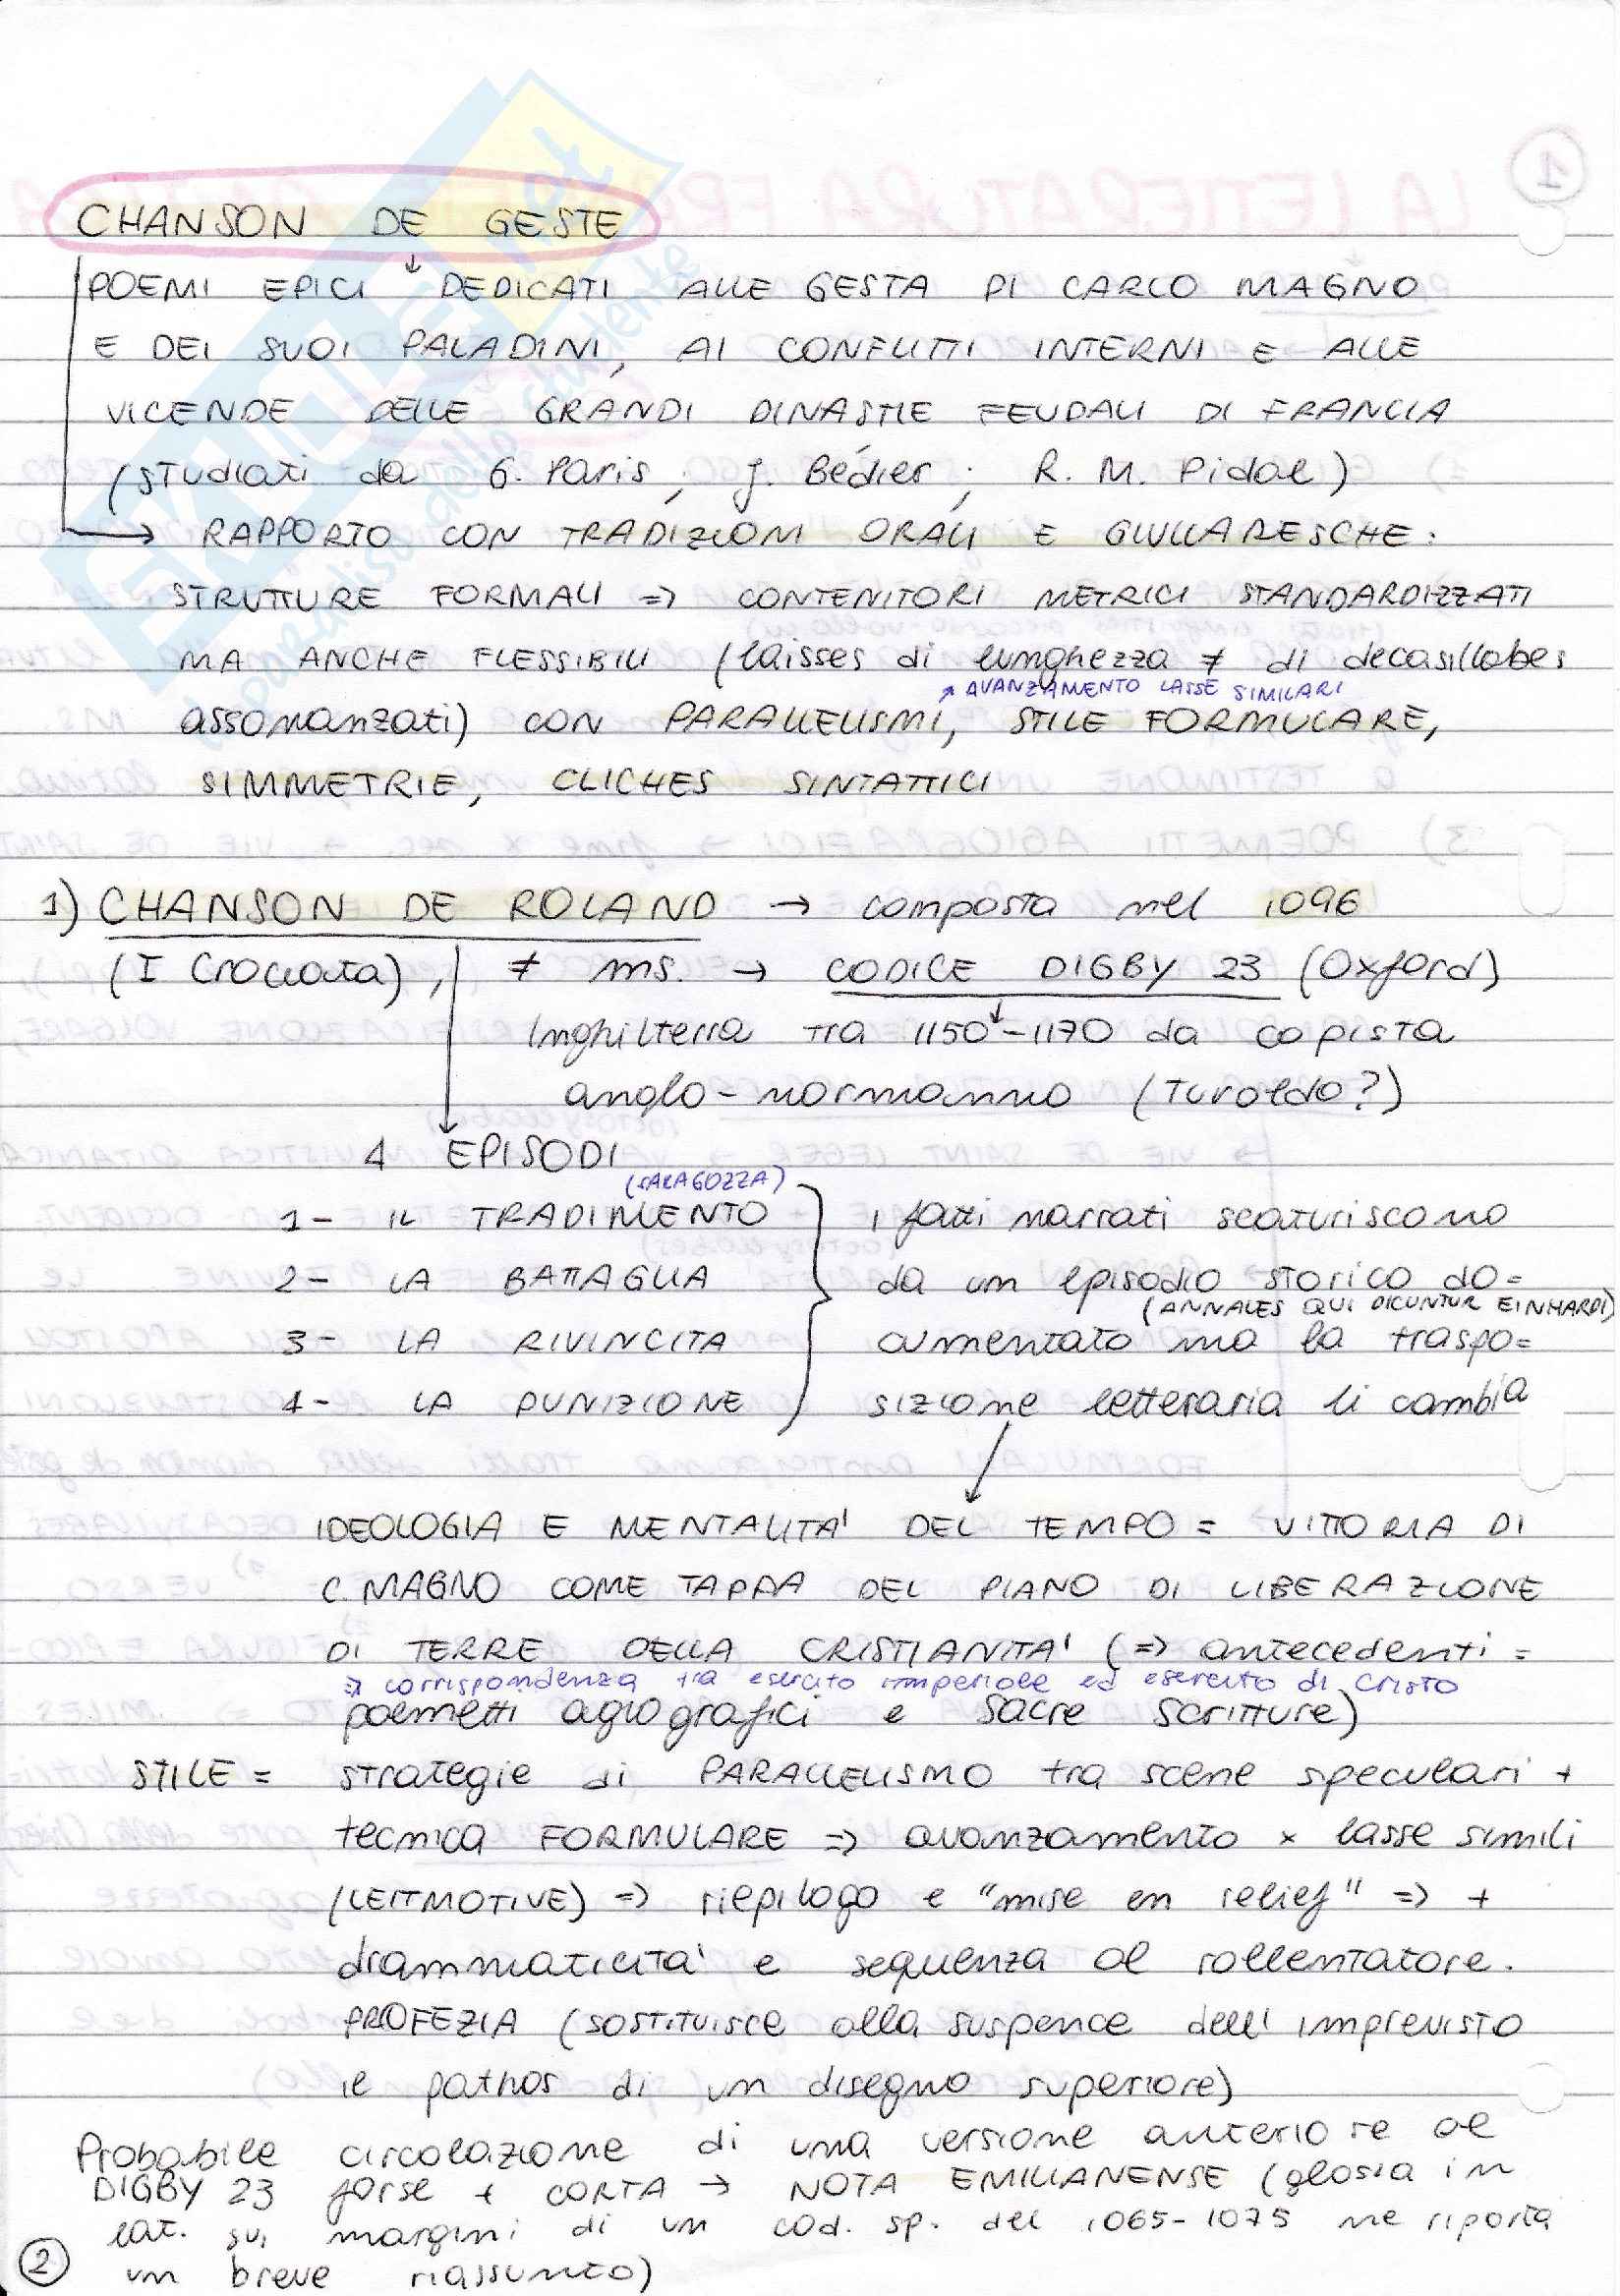 CHANSON DE GESTE
↓
POEMI EPICI DEDICATI ALLE GESTA DI CARLO MAGNO
E DEI SUOI PALADINI, AI CONFLITTI INTERNI E ALLE
VICENDE DELLE GRANDI DINASTIE FEUDALI DI FRANCIA
(studiati da G. Paris; J. Bédier; R. M. Pidal)
→ RAPPORTO CON TRADIZIONI ORALI E GIULLARESCHE:
STRUTTURE FORMALI => CONTENITORI METRICI STANDARDIZZATI
MA ANCHE FLESSIBILI (laisses di lunghezza ≠ di decasillabes
↗ AVANZAMENTO LASSE SIMILARI
assonanzati) CON PARALLELISMI, STILE FORMULARE,
SIMMETRIE, CLICHES SINTATTICI
1) CHANSON DE ROLAND → composta nel 1096
(I Crociata), ≠ ms. → CODICE DIGBY 23 (Oxford)
Inghilterra tra 1150-1170 da copista
anglo-normanno (Turoldo?)
4 EPISODI
(SARAGOZZA)
1- IL TRADIMENTO
2- LA BATTAGLIA
3- LA RIVINCITA
4- LA PUNIZIONE
i fatti narrati scaturiscono
da un episodio storico do=
(ANNALES QUI DICUNTUR EINHARDI)
cumentato ma la traspo=
sizione letteraria li cambia
IDEOLOGIA E MENTALITA' DEL TEMPO = VITTORIA DI
C. MAGNO COME TAPPA DEL PIANO DI LIBERAZIONE
DI TERRE DELLA CRISTIANITA' (=> antecedenti =
=> corrispondenza tra esercito imperiale ed esercito di Cristo
poemetti agiografici e Sacre Scritture)
STILE = strategie di PARALLELISMO tra scene speculari +
tecnica FORMULARE => avanzamento x lasse simili
(LEITMOTIVE) => riepilogo e "mise en relief" => +
drammaticita' e sequenza al rallentatore.
PROFEZIA (sostituisce alla suspence dell'imprevisto
il pathos di un disegno superiore)
Probabile circolazione di una versione anteriore al
DIGBY 23 forse + CORTA → NOTA EMILIANENSE (glossa in
lat. sui margini di un cod. sp. del 1065-1075 ne riporta
un breve riassunto)
2